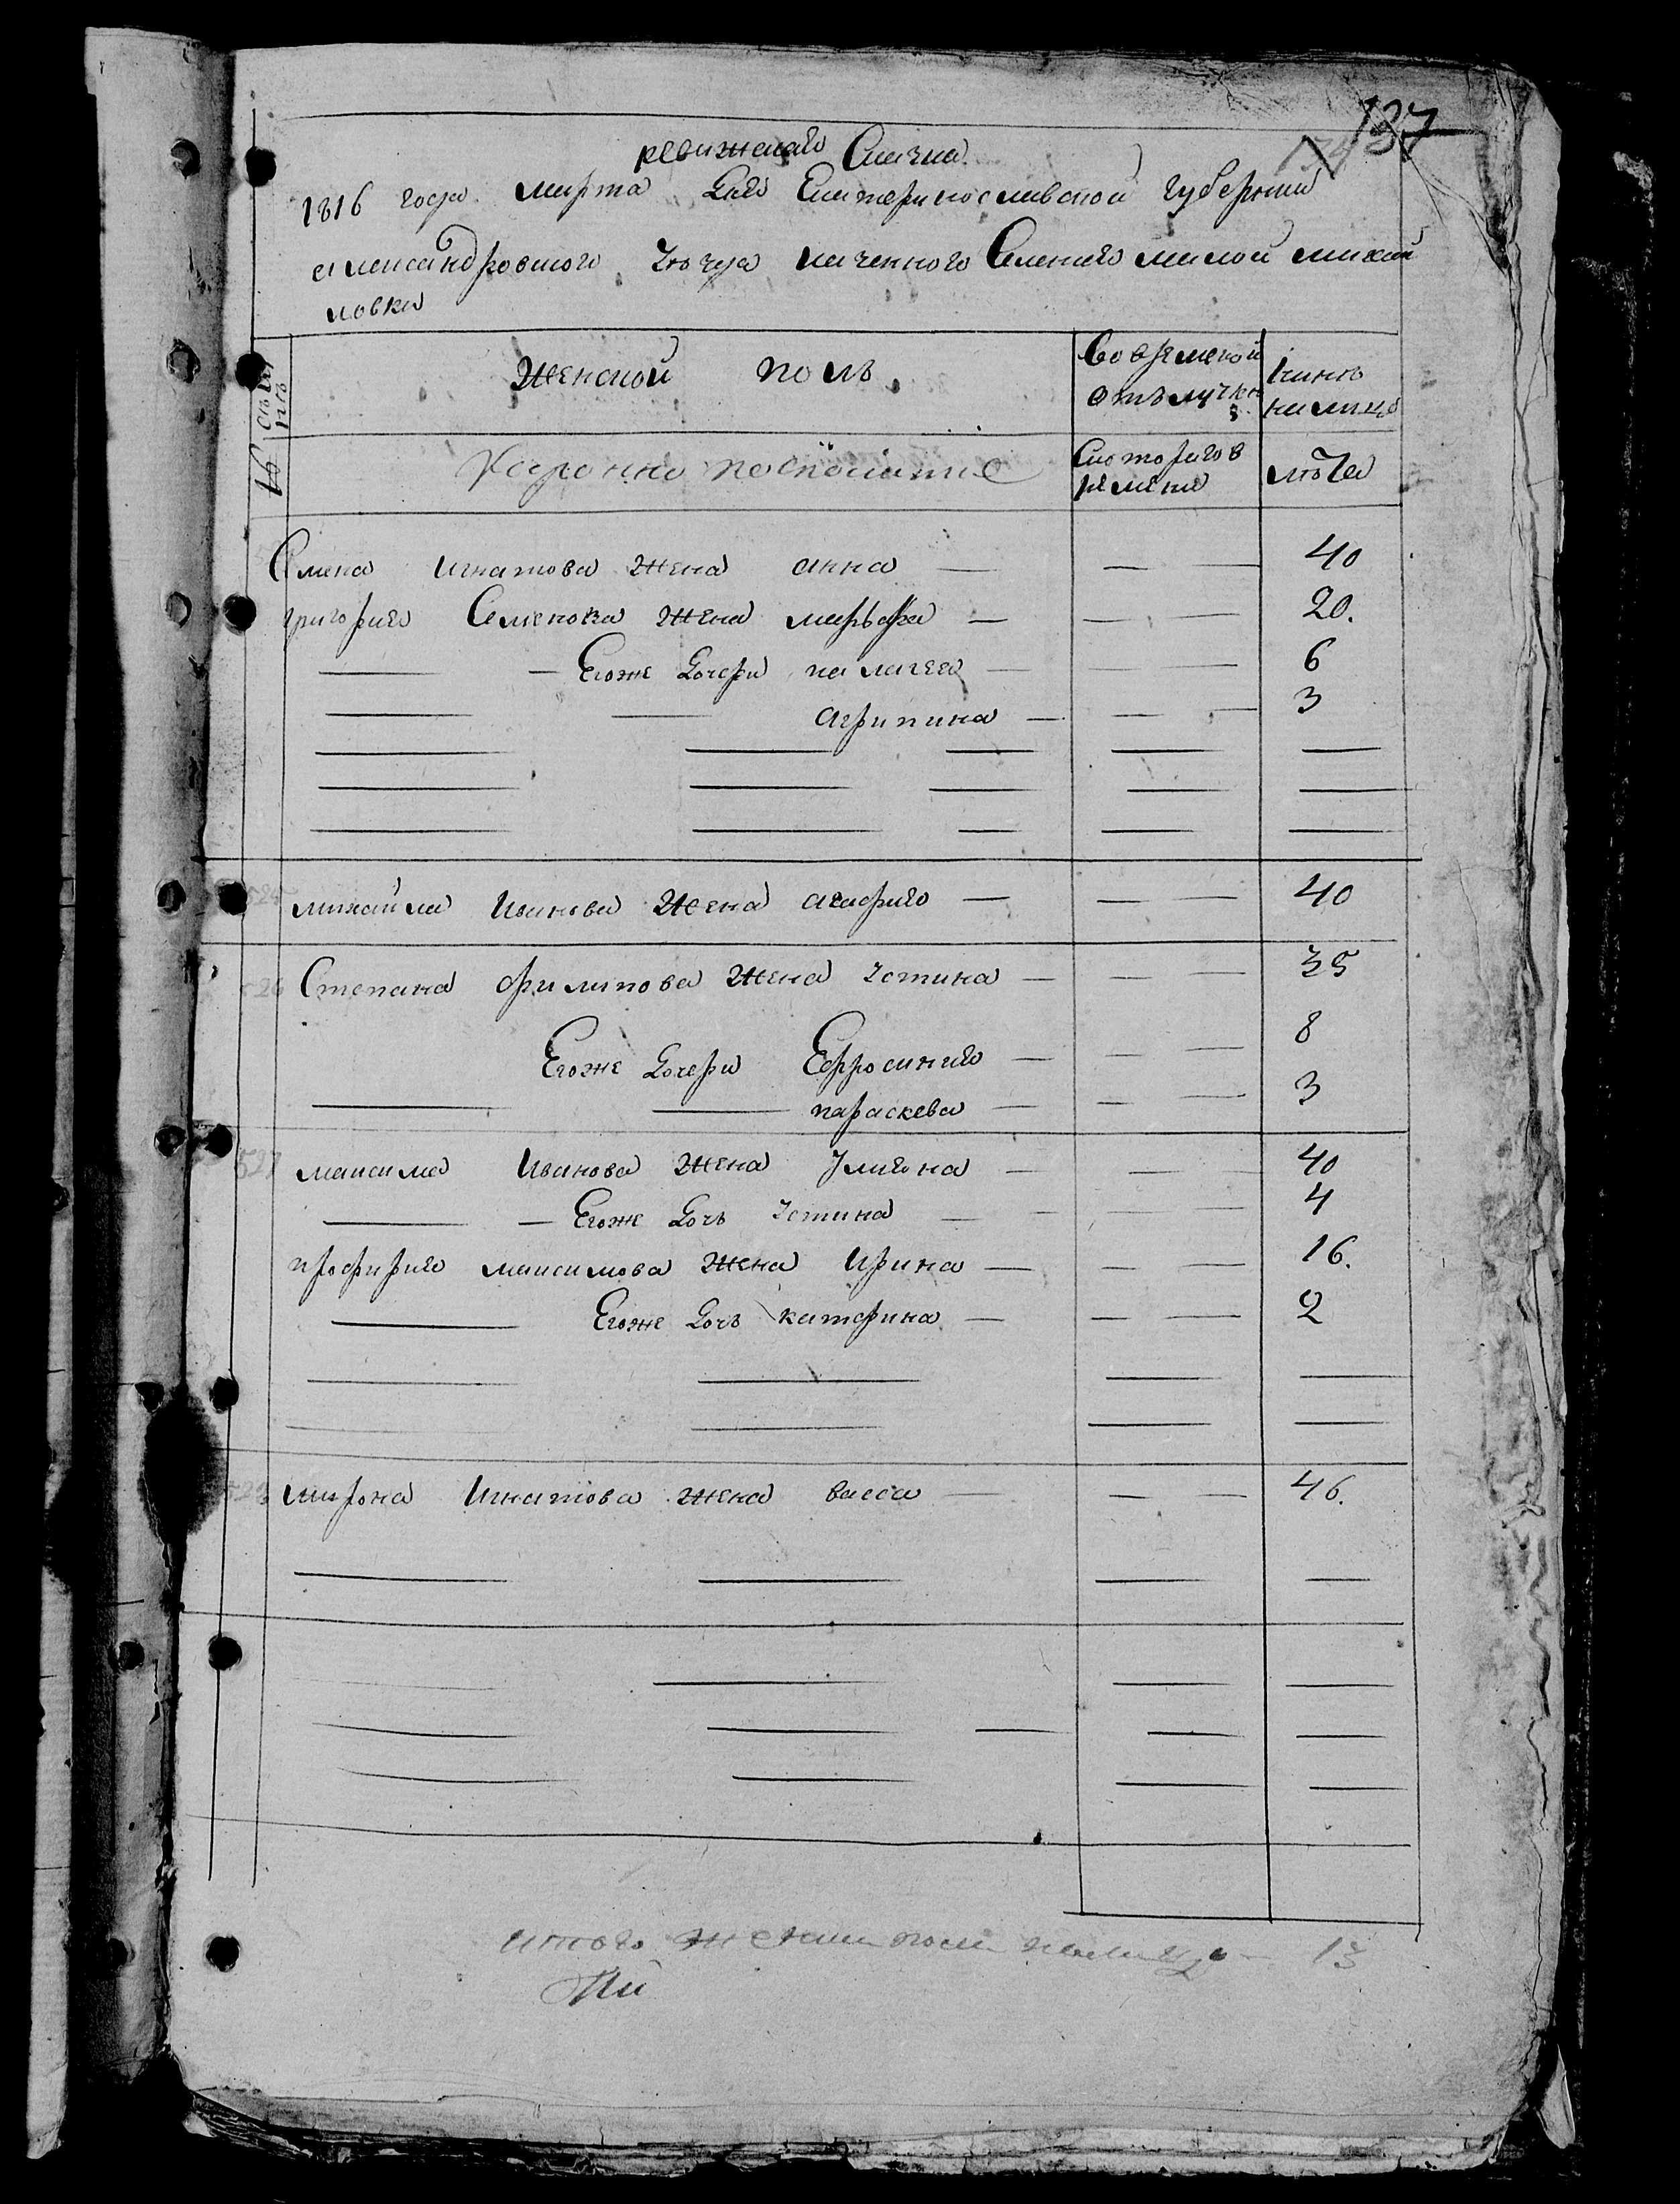 137
ревижская Сказка
1816 года марта дня Екатеринославской губернии
александровского уезда казенного Селения малой михай
ловки
женской полъ
Во временой отълучке
Ныне на лицо
Скоторого времени
лѣта
Семена Игнатова жена анна — — — 40
григория Семенова жена марьфа — — — 20.
— — Егоже дочери палагея — — 6
— — агрипина — — — 3
михайла Иванова жена агафия — — — 40
Степана филипова жена устина — — — 35
Егоже дочери Ефросиния — — — 8
— — параскева — — — 3
максима Иванова жена Улияна — — 40
— — Егоже дочь устина — — — 4
профирия максимова жена Ирина — — — 16.
— Егоже дочь катерина — — — 2
мирона Игнатова жена васса — — — 46.
итого женска пола налицо — 13